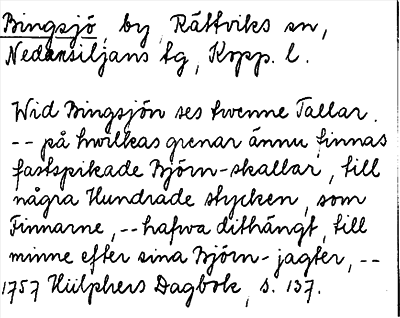 Bingsjö, by, Rättviks sn,
Nedansiljans fg, Kopp. l.
Wid Bingsjön ses twenne Tallar.
-- på hwilkas grenar ännu finnas
fastspikade Björn-skallar, till
några Hundrade stycken, som
Finnarne, -- hafwa dithängt, till
minne efter sina Björn-jagter, --
1757 Hülphers Dagbok, s. 137.